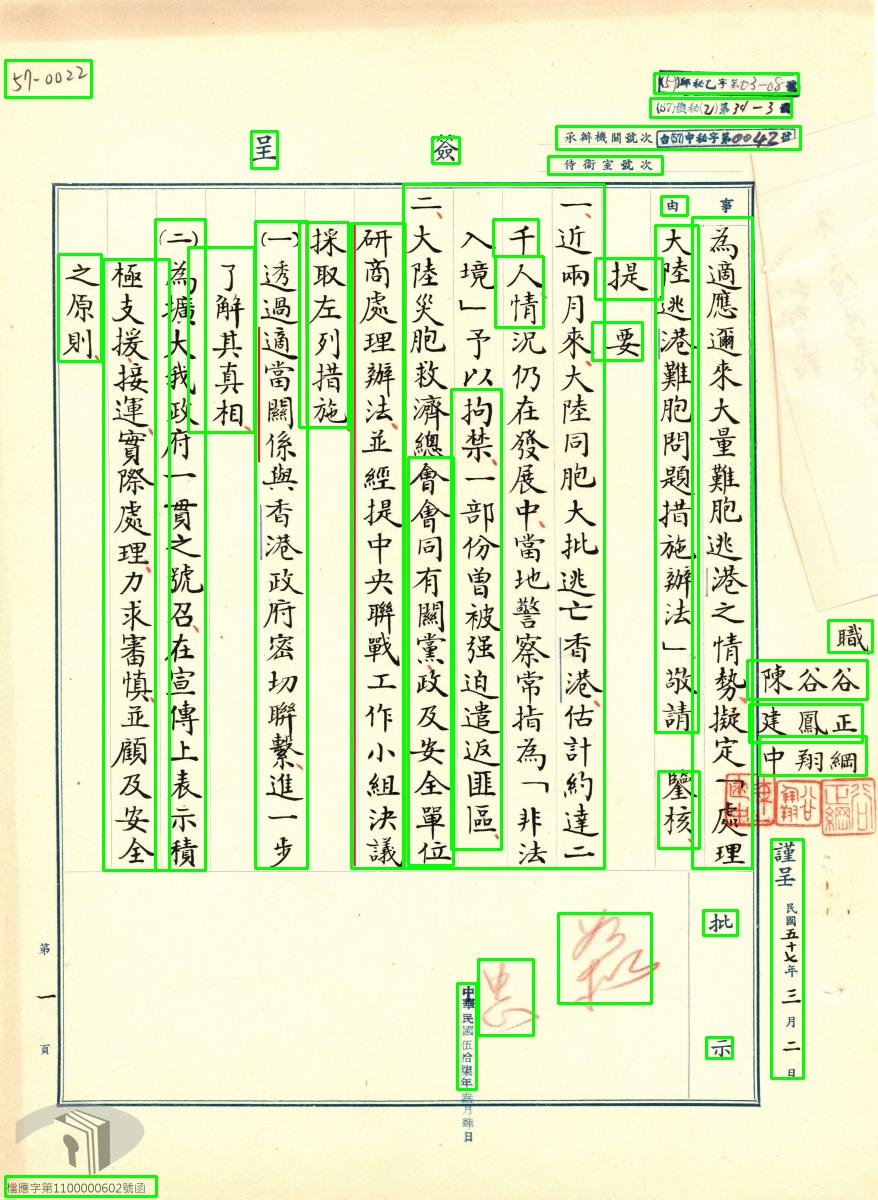 57-0022
(57)邱秘乙字第03-08號
(57)機秘(乙)第34-3號
承辦機關號次 台(57)中秘字第0042號
侍衛室號次
簽呈
事由
為適應邇來大量難胞逃港之情勢擬定「處理
大陸逃港難胞問題措施辦法」敬請 鑒核
提要
一、近兩月來、大陸同胞大批逃亡香港、估計約達二
千人情況仍在發展中、當地警察常指為「非法
入境」予以拘禁、一部份曾被强迫遣返匪區、
二、大陸災胞救濟總會會同有關黨、政及安全單位
研商處理辦法、並經提中央聯戰工作小組決議
採取左列措施
(一)透過適當關係與香港政府密切聯繫、進一步
了解其真相、
(二)為擴大我政府一貫之號召、在宣傳上表示積
極支援、接運實際處理、力求審慎、並顧及安全
之原則、
職
谷正綱
谷鳳翔
陳建中
謹呈 民國五十七年三月二日
批示
中華民國伍拾柒年叁月
日
第一頁
檔應字第1100000602號函